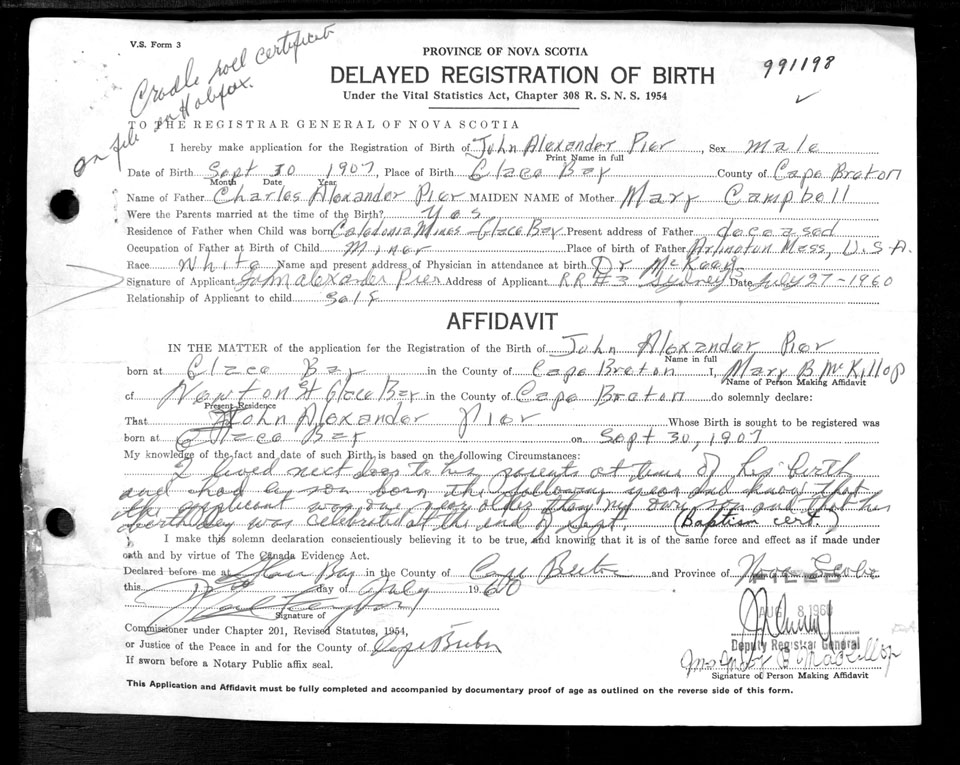 V.S. Form 3
Cradle roll certificate
on file in Halifax.
PROVINCE OF NOVA SCOTIA
DELAYED REGISTRATION OF BIRTH
991198
Under the Vital Statistics Act, Chapter 308 R. S. N. S. 1954
TO THE REGISTRAR GENERAL OF NOVA SCOTIA
I hereby make application for the Registration of Birth of John Alexander Pier, Sex Male
Print Name in full
Date of Birth Sept 30 1907, Place of Birth Glace Bay County of Cape Breton
Month Date Year
Name of Father Charles Alexander Pier MAIDEN NAME of Mother Mary Campbell
Were the Parents married at the time of the Birth? Yes
Residence of Father when Child was born Caledonia Mines - Glace Bay Present address of Father deceased
Occupation of Father at Birth of Child Miner Place of birth of Father Arlington Mass, U.S.A.
Race White Name and present address of Physician in attendance at birth Dr McKeeys
Signature of Applicant John alexander Pier Address of Applicant RR #3 Sydney Date July 27-1960
Relationship of Applicant to child self
AFFIDAVIT
IN THE MATTER of the application for the Registration of the Birth of John Alexander Pier
Name in full
born at Glace Bay in the County of Cape Breton I, Mary B McKillop
Name of Person Making Affidavit
of Newton St Glace Bay in the County of Cape Breton do solemnly declare:
Present Residence
That John Alexander Pier Whose Birth is sought to be registered was
born at Glace Bay on Sept 30, 1907
My knowledge of the fact and date of such Birth is based on the following Circumstances:
I lived next door to his parents at time of his birth
and had my son born the following year and know that
the applicant was one year older than my own son and that his
birthday was celebrated at the end of Sept. (Baptism cert.)
I make this solemn declaration conscientiously believing it to be true, and knowing that it is of the same force and effect as if made under
oath and by virtue of The Canada Evidence Act.
Declared before me at Glace Bay in the County of Cape Breton and Province of Nova Scotia
FILED
this day of July 1960
AUG 8 1960
Signature of
Commissioner under Chapter 201, Revised Statutes, 1954,
or Justice of the Peace in and for the County of Cape Breton
Deputy Registrar General
If sworn before a Notary Public affix seal.
Mrs Mary B MacKillop
Signature of Person Making Affidavit
This Application and Affidavit must be fully completed and accompanied by documentary proof of age as outlined on the reverse side of this form.